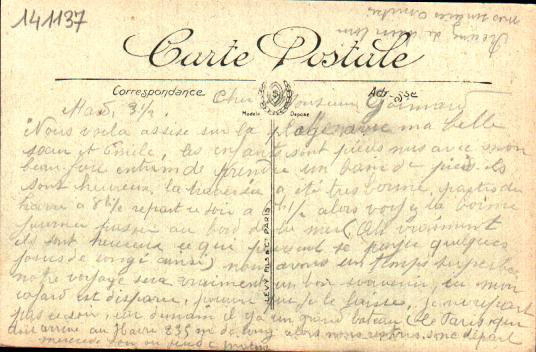 141137
Carte Postale
Correspondance
Adresse
Modèle Déposé
Mardi, 3h½
Cher Monsieur
Nous voila assise sur la plage avec ma belle
soeur et Émile, les enfants sont pieds nus avec mon
beau frère entrain de prendre un bain de pieds. ils
sont heureux, la traversée a été très bonne, partis du
havre a 8h½ repart ce soir a alors voyez la bonne
journée passée au bord de la mer (Ah vraiment
ils sont heureux ce qui peuvent se payer quelques
jours de congé ainsi) nous avons un temps superbe,
notre voyage sera vraiment un bon souvenir, mon
cafard est disparu, pourvu que je le laisse, je ne repart
pas ce soir, car demain il y a un grand bateau (le Paris) qui
arrive au Havre 235 m de long alors nous
mercredi ou jeudi
LEVY FILS & Cie PARIS